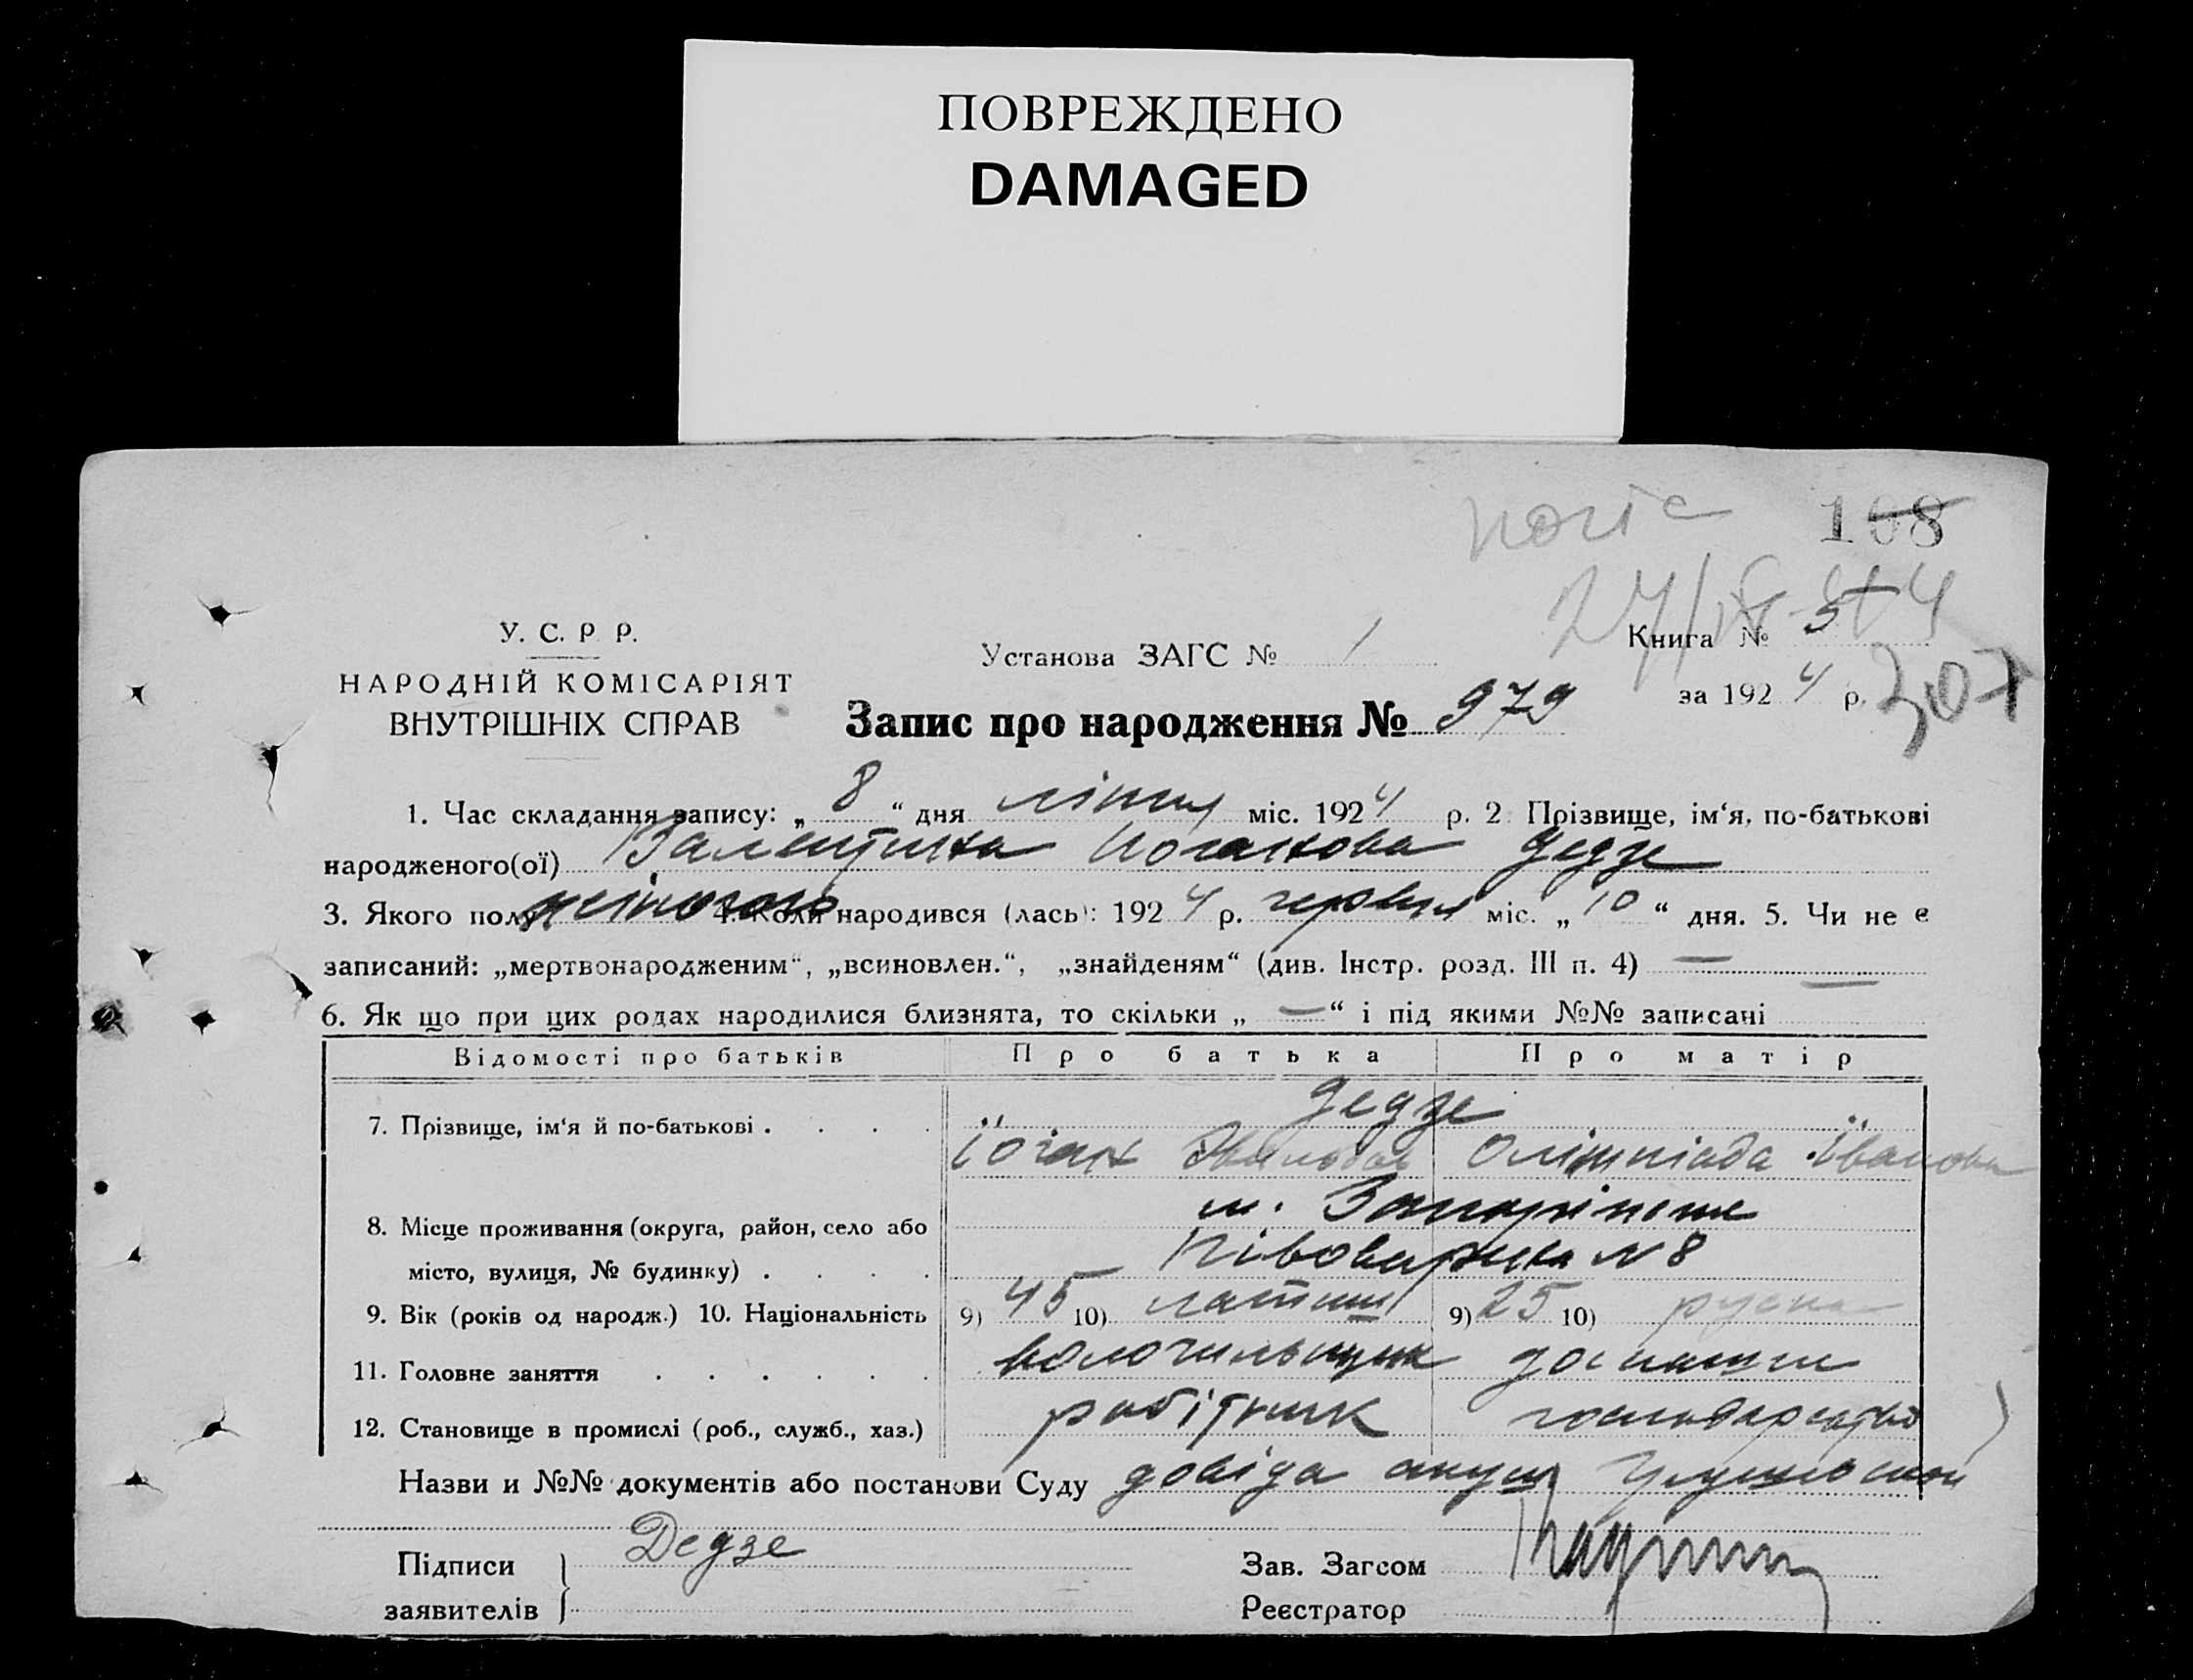 ПОВРЕЖДЕНО
DAMAGED
108
У. С. Р. Р.
НАРОДНІЙ КОМІСАРІЯТ
ВНУТРІШНІХ СПРАВ
Установа ЗАГС № 1
Книга №
за 1924 р.
307
Запис про народження № 979
1. Час складання запису: „ 8 “ дня липня міс. 1924 р. 2 Прізвище, ім‘я, по-батькові
народженого(ої) Валентина Иоганова Дедзе
3. Якого полу жіночого 4. Коли народився (лась): 1924 р. червня міс. „ 10 “ дня. 5. Чи не є
записаний: „мертвонародженим“, „всиновлен.“, „знайденям“ (див. Інстр. розд. III п. 4) —
6. Як що при цих родах народилися близнята, то скільки „ — “ і під якими №№ записані —
Відомості про батьків Про батька Про матір
Дедзе
7. Прізвище, ім‘я й по-батькові . . . .
Їоган Олімпіада Іванова
м. Запоріжже
8. Місце проживання (округа, район, село або
місто, вулиця, № будинку) . . . . № 8
9. Вік (років од народж.) 10. Національність 9) 45 10) латиш 9) 25 10) руска
11. Головне заняття . . . . . . домашнє
12. Становище в промислі (роб., служб., хаз.) робітник господарство
Назви и №№ документів або постанови Суду довідка акуш.
Підписи
заявителів
Дедзе
Зав. Загсом
Реєстратор